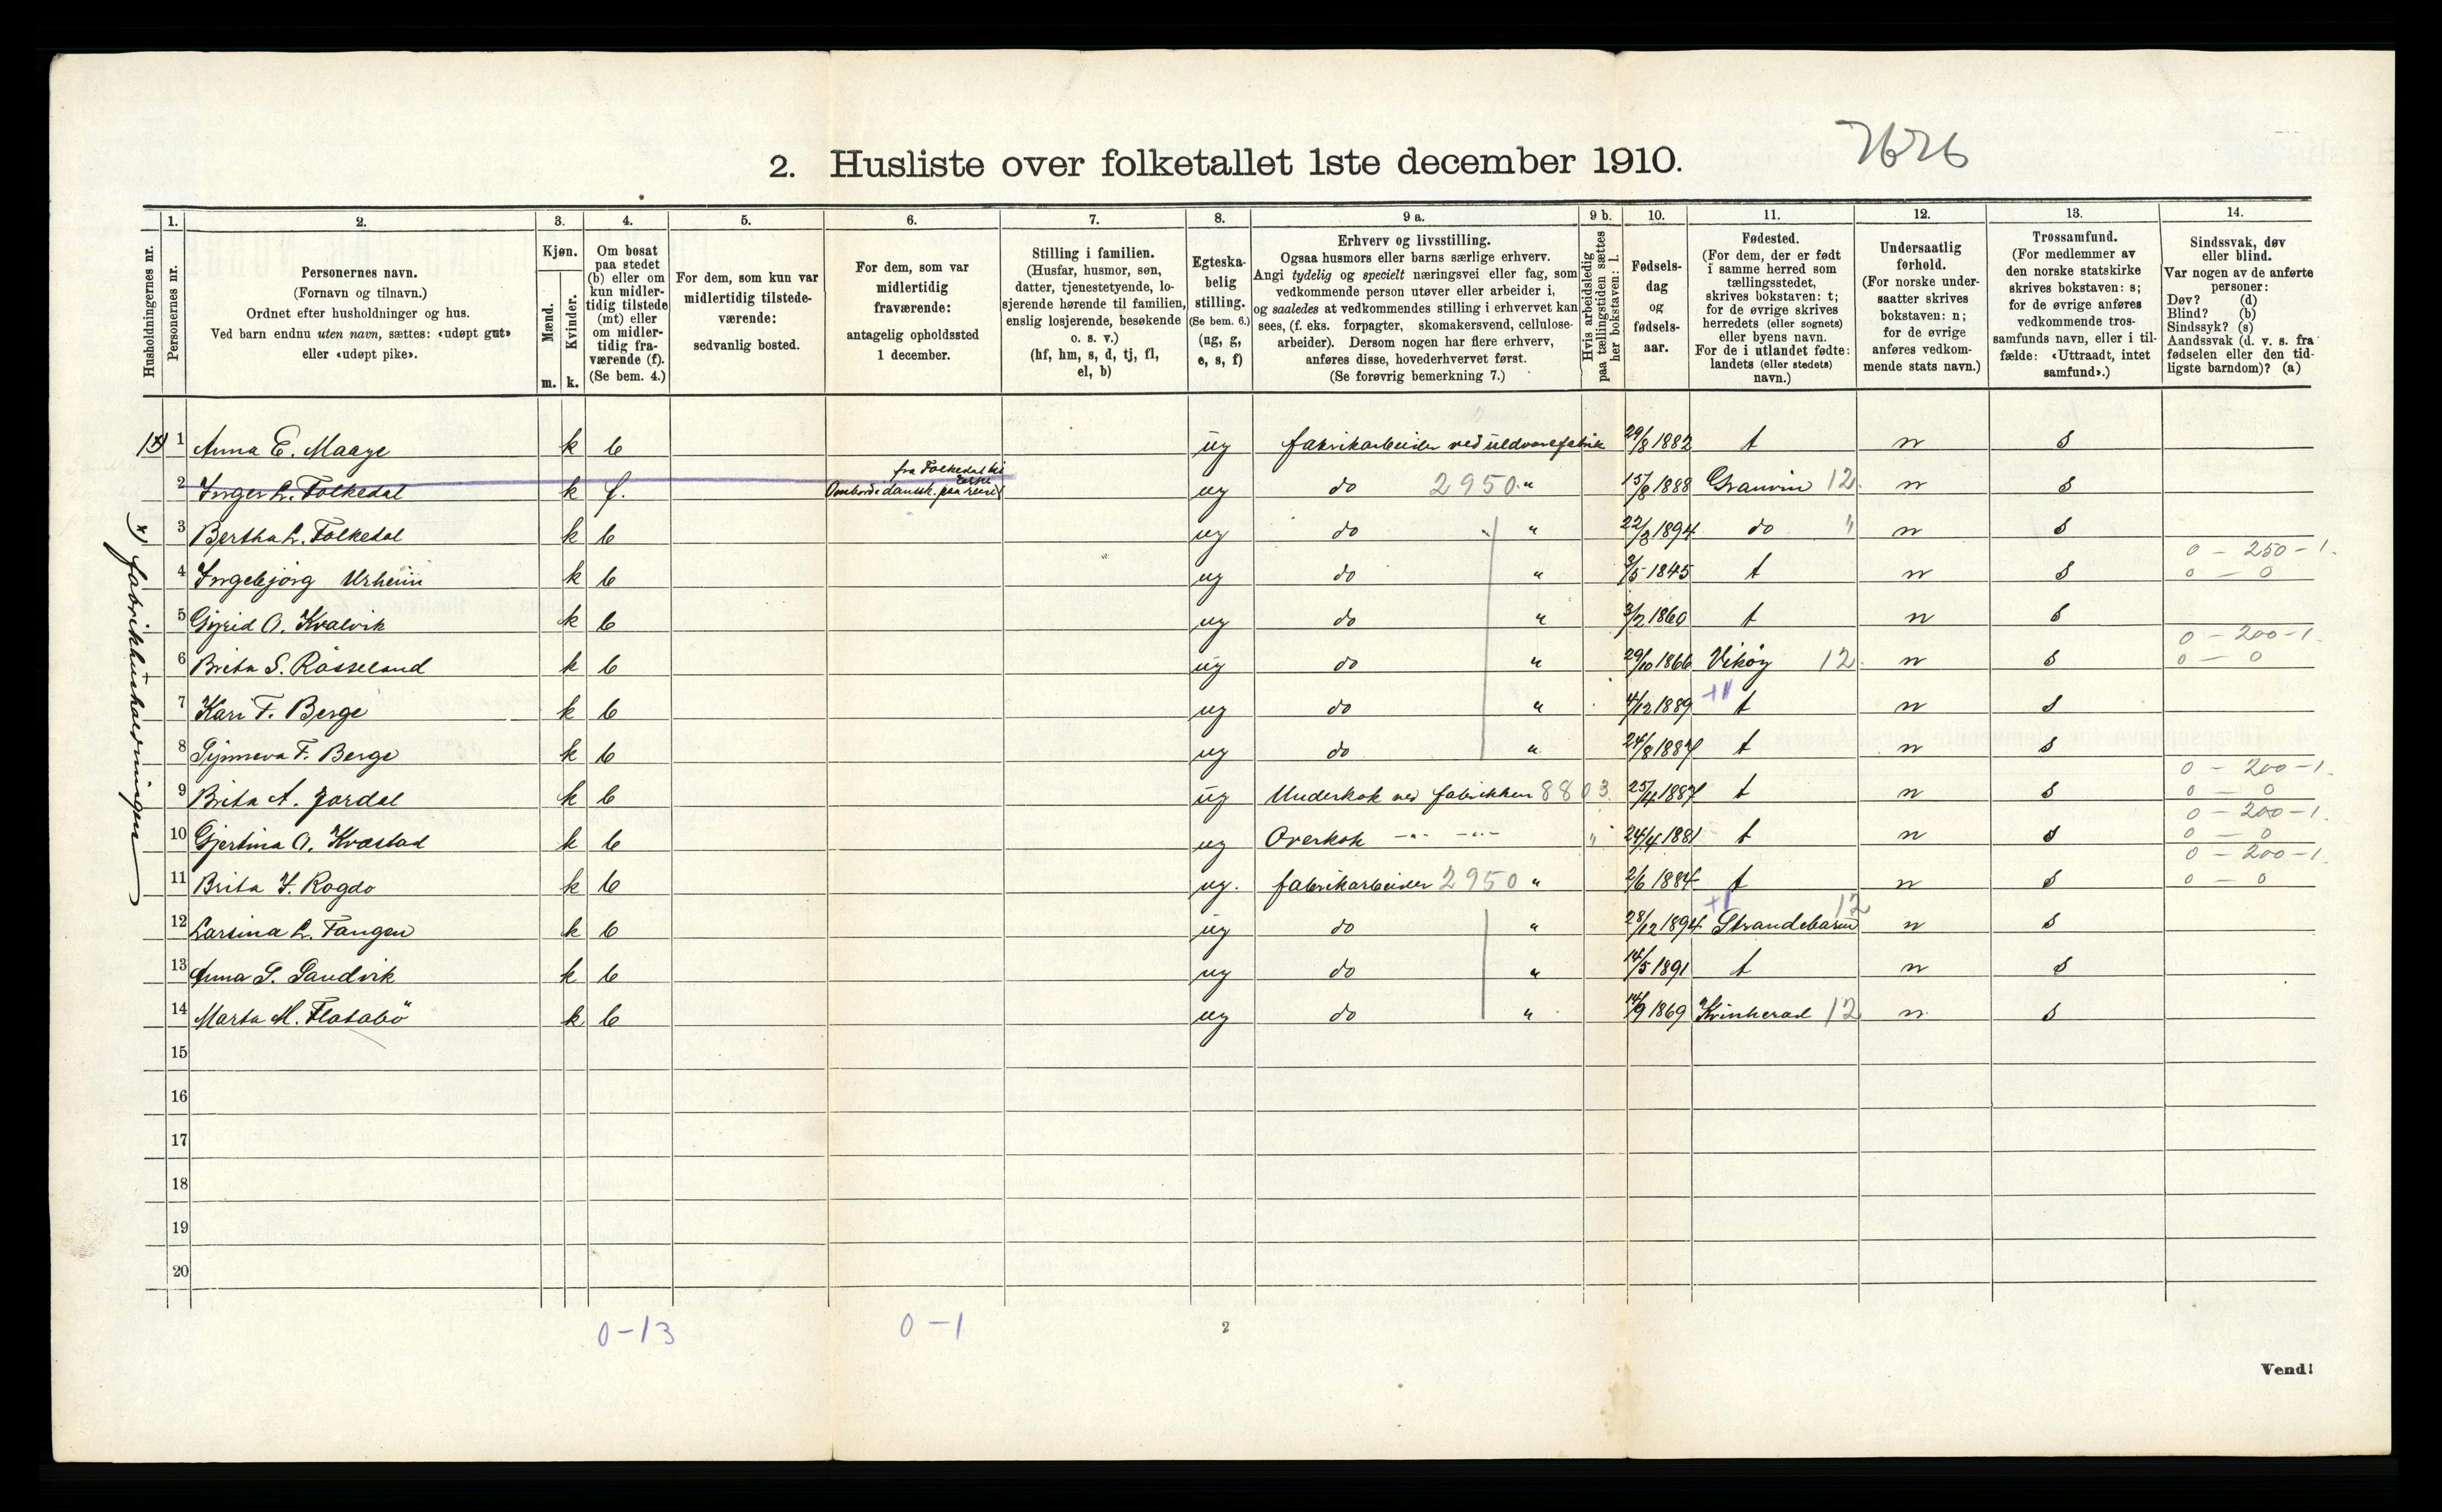 2. Husliste over folketallet 1ste december 1910.
1. 2. 3. 4. 5. 6. 7. 8. 9 a. 9 b. 10. 11. 12. 13. 14.
Husholdningernes nr.
Personernes nr.
Personernes navn.
(Fornavn og tilnavn.)
Ordnet efter husholdninger og hus.
Ved barn endnu uten navn, sættes: «udøpt gut»
eller «udøpt pike».
Kjøn.
Mænd.
Kvinder.
m. k.
Om bosat
paa stedet
(b) eller om
kun midler-
tidig tilstede
(mt) eller
om midler-
tidig fra-
værende (f).
(Se bem. 4.)
For dem, som kun var
midlertidig tilstede-
værende:
sedvanlig bosted.
For dem, som var
midlertidig
fraværende:
antagelig opholdssted
1 december.
Stilling i familien.
(Husfar, husmor, søn,
datter, tjenestetyende, lo-
sjerende hørende til familien,
enslig losjerende, besøkende
o. s. v.)
(hf, hm, s, d, tj, fl,
el, b)
Egteska-
belig
stilling.
(Se bem. 6.)
(ug, g,
e, s, f)
Erhverv og livsstilling.
Ogsaa husmors eller barns særlige erhverv.
Angi tydelig og specielt næringsvei eller fag, som
vedkommende person utøver eller arbeider i,
og saaledes at vedkommendes stilling i erhvervet kan
sees, (f. eks. forpagter, skomakersvend, cellulose-
arbeider). Dersom nogen har flere erhverv,
anføres disse, hovederhvervet først.
(Se forøvrig bemerkning 7.)
Hvis arbeidsledig
paa tællingstiden sættes
her bokstaven: l.
Fødsels-
dag
og
fødsels-
aar.
Fødested.
(For dem, der er født
i samme herred som
tællingsstedet,
skrives bokstaven: t;
for de øvrige skrives
herredets (eller sognets)
eller byens navn.
For de i utlandet fødte:
landets (eller stedets)
navn.)
Undersaatlig
forhold.
(For norske under-
saatter skrives
bokstaven: n;
for de øvrige
anføres vedkom-
mende stats navn.)
Trossamfund.
(For medlemmer av
den norske statskirke
skrives bokstaven: s;
for de øvrige anføres
vedkommende tros-
samfunds navn, eller i til-
fælde: «Uttraadt, intet
samfund».)
Sindssvak, døv
eller blind.
Var nogen av de anførte
personer:
Døv? (d)
Blind? (b)
Sindssyk? (s)
Aandssvak (d. v. s. fra
fødselen eller den tid-
ligste barndom)? (a)
1 x) 1 Anna E. Maage k b ug fabrikarbeider ved uldvarefabrik 29/8 1882 t n s
fra Folkedal til
2 Inger L. Folkedal k f. Ombord i dampsk. paa reise ug do 2950 " 15/8 1888 Granvin 12 n s
3 Bertha L. Folkedal k b ug do " 22/3 1894 do " n s
0 - 250 - 1.
4 Ingebjørg Urheim k b ug do " 3/5 1845 t n s 0 - 0
5 Gjyrid O. Kvalvik k b ug do " 3/2 1860 t n s
0 - 200 - 1.
6 Brita S. Røsseland k b ug do " 29/10 1866 Vikøy 12 n s 0 - 0
7 Kari T. Berge k b ug do " 4/12 1889 +1 t n s
8 Synneva T. Berge k b ug do " 24/8 1887 t n s
0 - 200 - 1.
9 Brita A. Jordal k b ug Underkok ved fabrikken 8803 25/4 1887 t n s 0 - 0
0 - 200 - 1.
10 Gjertina O. Kvæstad k b ug Overkok -"- -"- " 24/4 1881 t n s 0 - 0
0 - 200 - 1.
11 Brita I. Rogdo k b ug. fabrikarbeider 2950 " 2/6 1884 t n s 0 - 0
12 Larsina L. Tangen k b ug do " 28/12 1894 +1 Strandebarm 12 n s
13 Anna S. Sandvik k b ug do " 14/5 1891 t n s
14 Marta M. Flatabö k b ug do " 14/9 1869 Kvinherad 12 n s
15
16
17
18
19
20
x) fabrikhusholdningen
0-13 0-1 2
Vend!